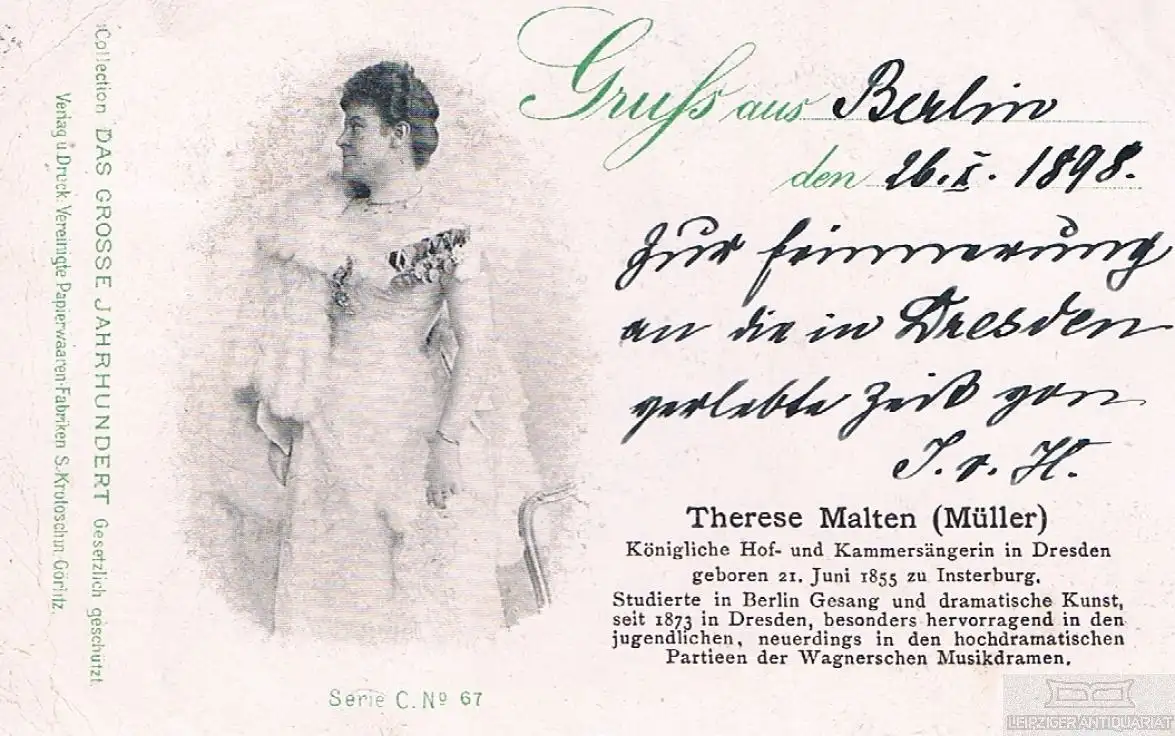 Collection DAS GROSSE JAHRHUNDERT Gesetzlich geschützt.
Verlag u. Druck: Vereinigte Papierwaaren-Fabriken S. Krotoschin-Görlitz.
Gruss aus Berlin
den 26. I. 1898.
Zur Erinnerung
an die in Dresden
verlebte Zeit von
J. v. H.
Therese Malten (Müller)
Königliche Hof- und Kammersängerin in Dresden
geboren 21. Juni 1855 zu Insterburg.
Studierte in Berlin Gesang und dramatische Kunst,
seit 1873 in Dresden, besonders hervorragend in den
jugendlichen, neuerdings in den hochdramatischen
Partieen der Wagnerschen Musikdramen.
Serie C. Nº 67
LEIPZIGER ANTIQUARIAT